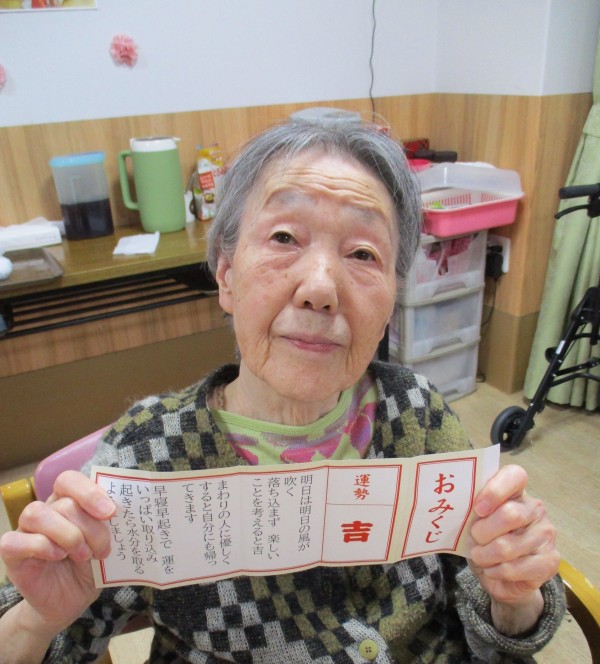 おみくじ
運勢
吉
明日は明日の風が
吹く
落ち込まず 楽しい
ことを考えると吉
まわりの人に優しく
すると自分にも帰っ
てきます
早寝早起きで 運を
いっぱい取り込み
起きたら水分を取る
よ しましょう